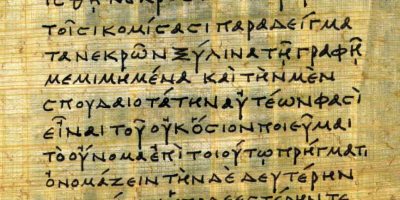 ΤΟΙ͂ϹΙΚΟΜΊϹΑϹΙΠΑΡΑΔΕΊΓΜΑ
ΤΑΝΕΚΡΩ͂ΝΞΎΛΙΝΑΤΗ͂ΓΡΑΦΗ͂
ΜΕΜΙΜΗΜΈΝΑ ΚΑῚΤῊΝΜῈΝ
ϹΠΟΥΔΑΙΟΤΆΤΗΝΑΥ̓ΤΈΩΝΦΑϹῚ
ΕἾΝΑΙΤΟΥ͂ΟΥ̓ΚὍϹΙΟΝΠΟΙΕΥ͂ΜΑΙ
ΤῸΟΥ̓́ΝΟΜΑἘΠῚΤΟΙΟΎΤΩΠΡΉΓΜΑΤΙ
ὈΝΟΜΆΖΕΙΝΤῊΝΔῈΔΕΥΤΈΡΗΝ